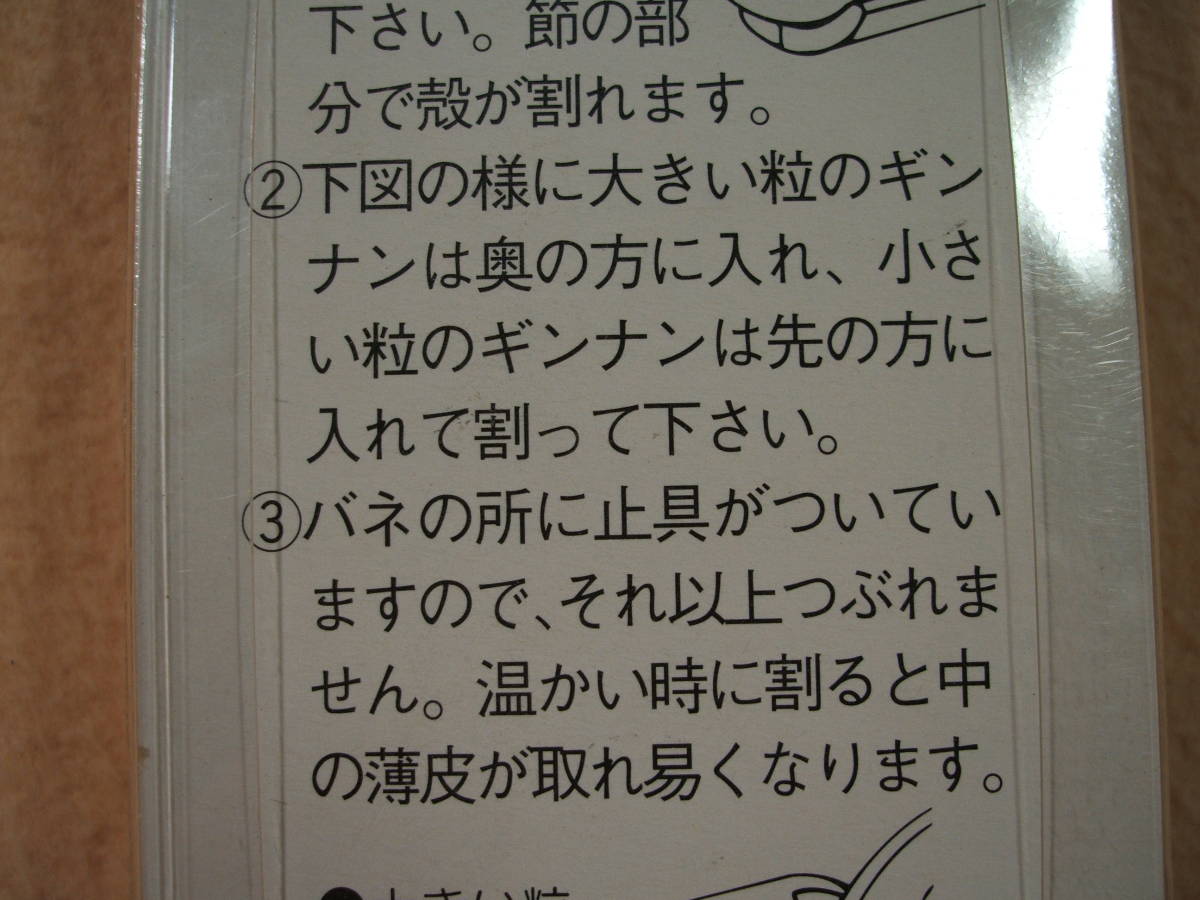 下さい。節の部
分で殻が割れます。
②下図の様に大きい粒のギン
ナンは奥の方に入れ、小さ
い粒のギンナンは先の方に
入れて割って下さい。
③バネの所に止具がついてい
ますので、それ以上つぶれま
せん。温かい時に割ると中
の薄皮が取れ易くなります。
●大きい粒